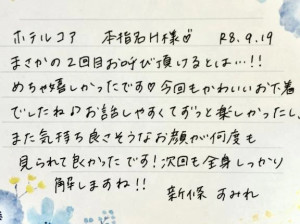 ホテルコア 本指名H様♡ R8.9.19
まさかの2回目お呼び頂けるとは…!!
めちゃ嬉しかったです♡今回もかわいいお下着
でしたね♪お話しやすくてずっと楽しかったし、
また気持ち良さそうなお顔が何度も
見られて良かったです!次回も全身しっかり
解しますね!!
新保 すみれ